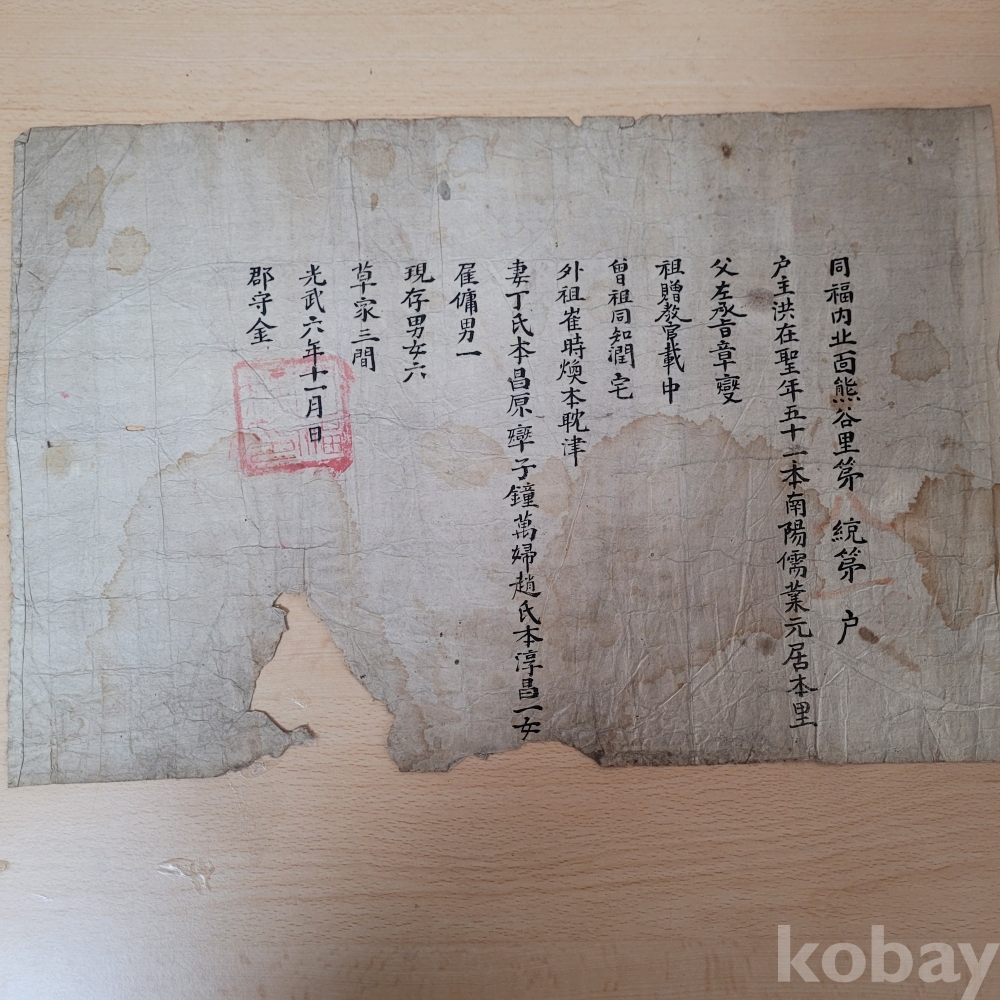 同福内北面熊谷里第 統第 户
户主洪在聖年五十一本南陽儒業元居本里
父左承旨章燮
祖贈教官載中
曾祖同知潤宅
外祖崔時煥本耽津
妻丁氏本昌原率子鐘萬婦趙氏本淳昌一女
雇傭男一
現存男女六
草家三間
光武六年十一月 日
郡守金
kobay